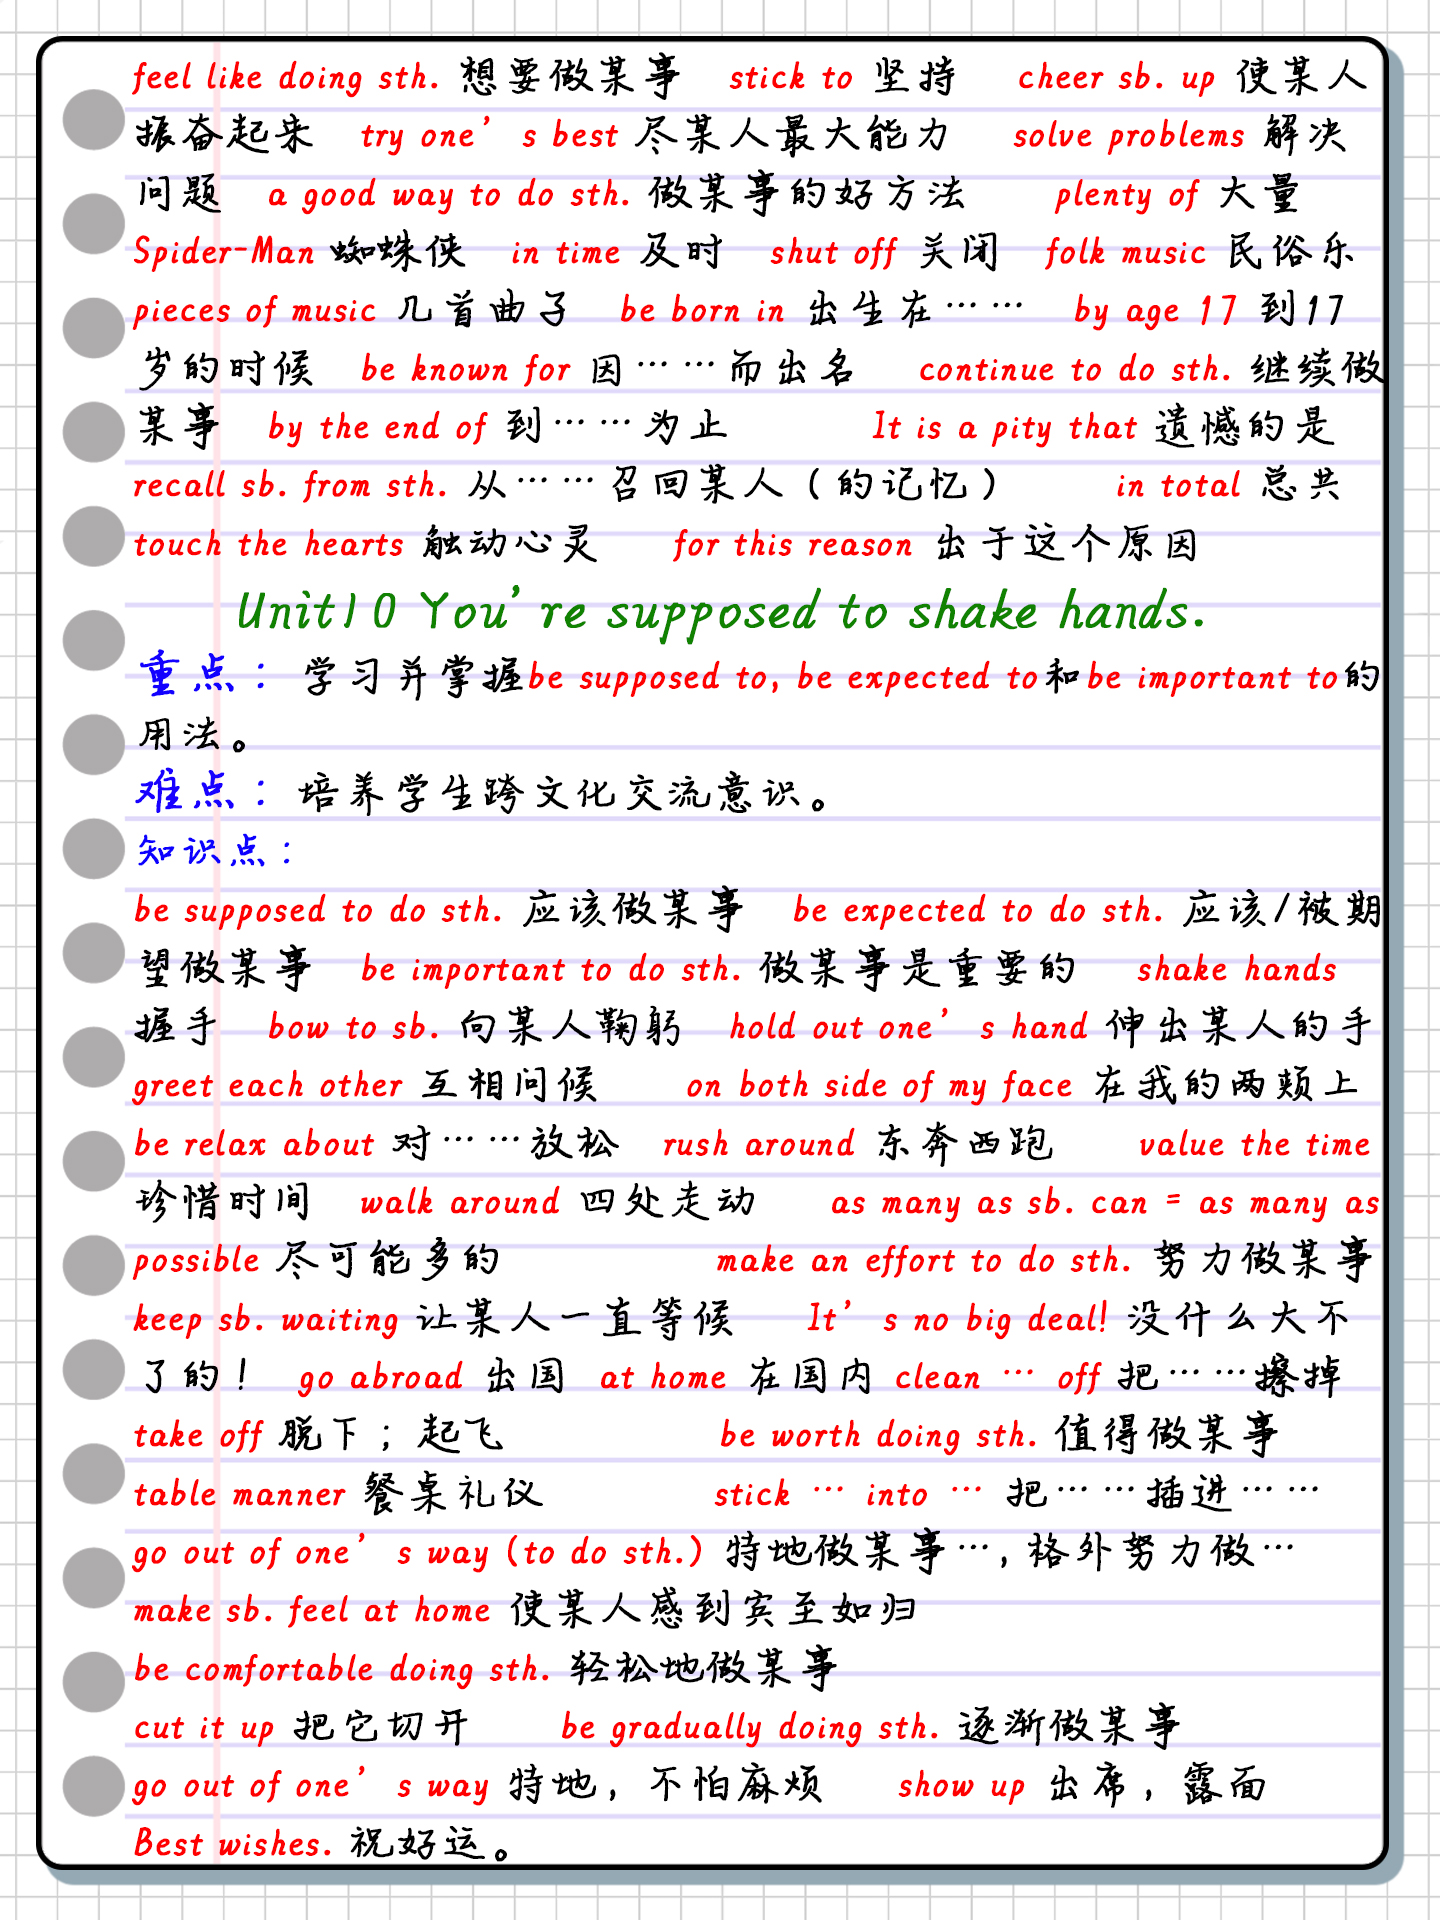 feel like doing sth. 想要做某事 stick to 坚持 cheer sb. up 使某人
振奋起来 try one's best 尽某人最大能力 solve problems 解决
问题 a good way to do sth. 做某事的好方法 plenty of 大量
Spider-Man 蜘蛛侠 in time 及时 shut off 关闭 folk music 民俗乐
pieces of music 几首曲子 be born in 出生在…… by age 17 到17
岁的时候 be known for 因……而出名 continue to do sth. 继续做
某事 by the end of 到……为止 It is a pity that 遗憾的是
recall sb. from sth. 从……召回某人(的记忆) in total 总共
touch the hearts 触动心灵 for this reason 出于这个原因
Unit10 You're supposed to shake hands.
重点：学习并掌握be supposed to, be expected to和be important to的
用法。
难点：培养学生跨文化交流意识。
知识点：
be supposed to do sth. 应该做某事 be expected to do sth. 应该/被期
望做某事 be important to do sth. 做某事是重要的 shake hands
握手 bow to sb. 向某人鞠躬 hold out one's hand 伸出某人的手
greet each other 互相问候 on both side of my face 在我的两颊上
be relax about 对……放松 rush around 东奔西跑 value the time
珍惜时间 walk around 四处走动 as many as sb. can = as many as
possible 尽可能多的 make an effort to do sth. 努力做某事
keep sb. waiting 让某人一直等候 It's no big deal! 没什么大不
了的! go abroad 出国 at home 在国内 clean … off 把……擦掉
take off 脱下；起飞 be worth doing sth. 值得做某事
table manner 餐桌礼仪 stick … into … 把……插进……
go out of one's way (to do sth.) 特地做某事…, 格外努力做…
make sb. feel at home 使某人感到宾至如归
be comfortable doing sth. 轻松地做某事
cut it up 把它切开 be gradually doing sth. 逐渐做某事
go out of one's way 特地, 不怕麻烦 show up 出席, 露面
Best wishes. 祝好运。